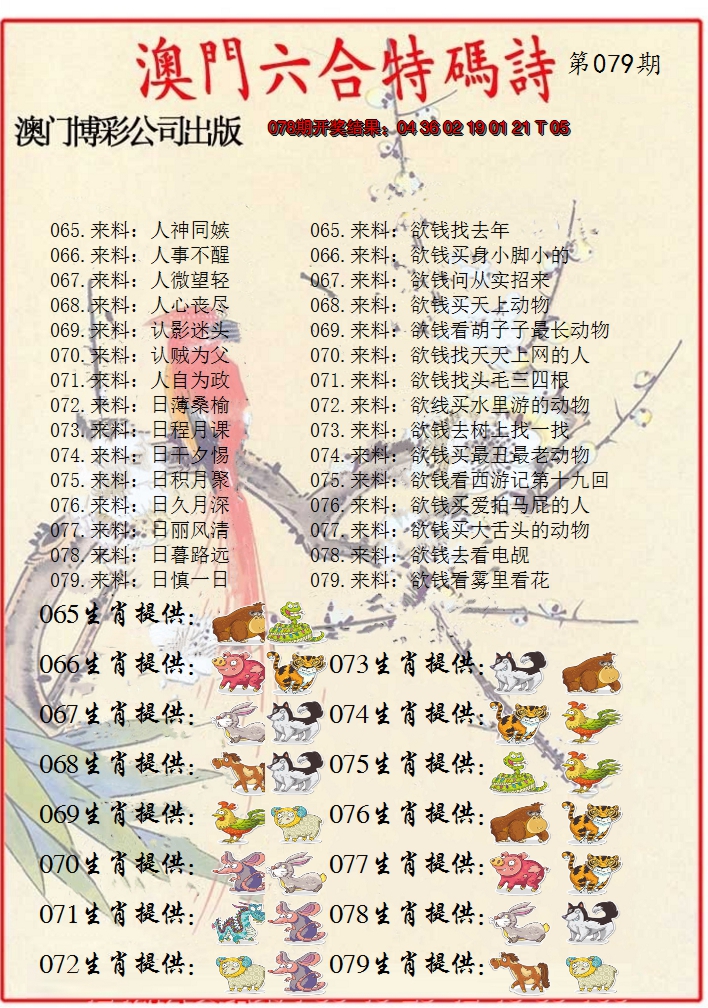 澳門六合特碼詩 第079期
澳门博彩公司出版 078期开奖结果：04 36 02 19 01 21 T 05
065.来料：人神同嫉 065.来料：欲钱找去年
066.来料：人事不醒 066.来料：欲钱买身小脚小的
067.来料：人微望轻 067.来料：欲钱何从实招来
068.来料：人心丧尽 068.来料：欲钱买天上动物
069.来料：认影迷头 069.来料：欲钱看胡子子最长动物
070.来料：认贼为父 070.来料：欲钱找天天上网的人
071.来料：人自为政 071.来料：欲钱找头毛三四根
072.来料：日薄桑榆 072.来料：欲线买水里游的动物
073.来料：日程月课 073.来料：欲钱去树上找一找
074.来料：日干夕惕 074.来料：欲钱买最丑最老动物
075.来料：日积月聚 075.来料：欲钱看西游记第十九回
076.来料：日久月深 076.来料：欲钱买爱拍马屁的人
077.来料：日丽风清 077.来料：欲钱买大舌头的动物
078.来料：日暮路远 078.来料：欲钱去看电觇
079.来料：日慎一日 079.来料：欲钱看雾里看花
065生肖提供：
066生肖提供： 073生肖提供：
067生肖提供： 074生肖提供：
068生肖提供： 075生肖提供：
069生肖提供： 076生肖提供：
070生肖提供： 077生肖提供：
071生肖提供： 078生肖提供：
072生肖提供： 079生肖提供：